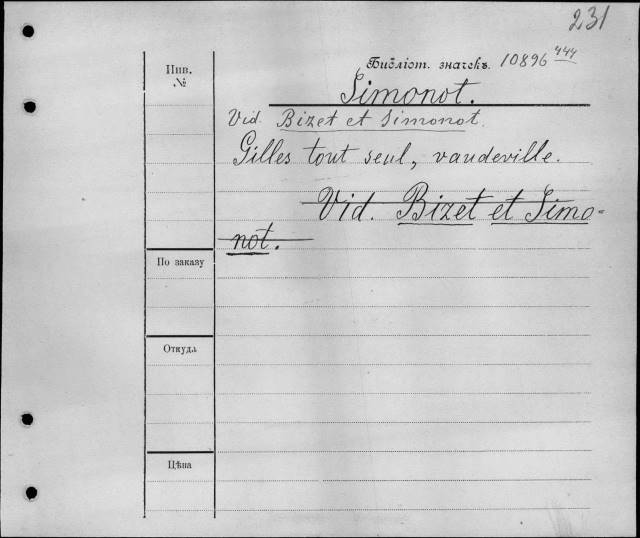 231
Инв. №
Библіот. значекъ. 10896 444
Simonot.
Vid. Bizet et Simonot.
Gilles tout seul, vaudeville.
Vid. Bizet et Simo-
not.
По заказу
Откуда
Цѣна